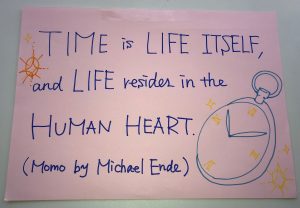 TIME is LIFE ITSELF,
and LIFE resides in the
HUMAN HEART.
(Momo by Michael Ende)